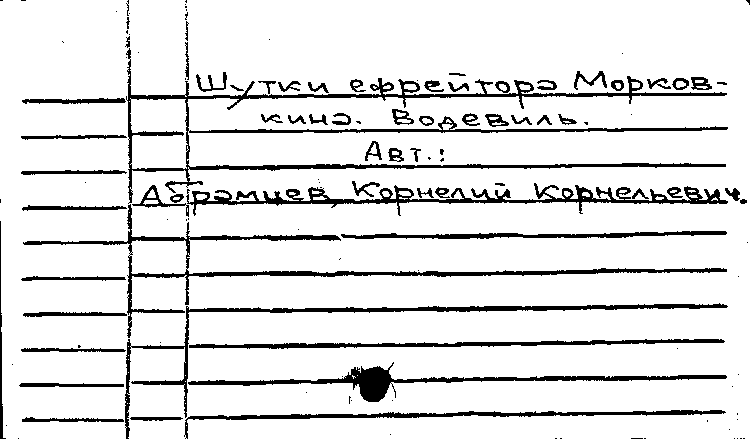 Шутки ефрейтора Морков-
кина. Водевиль.
Авт.:
Абрамцев, Корнелий Корнельевич.